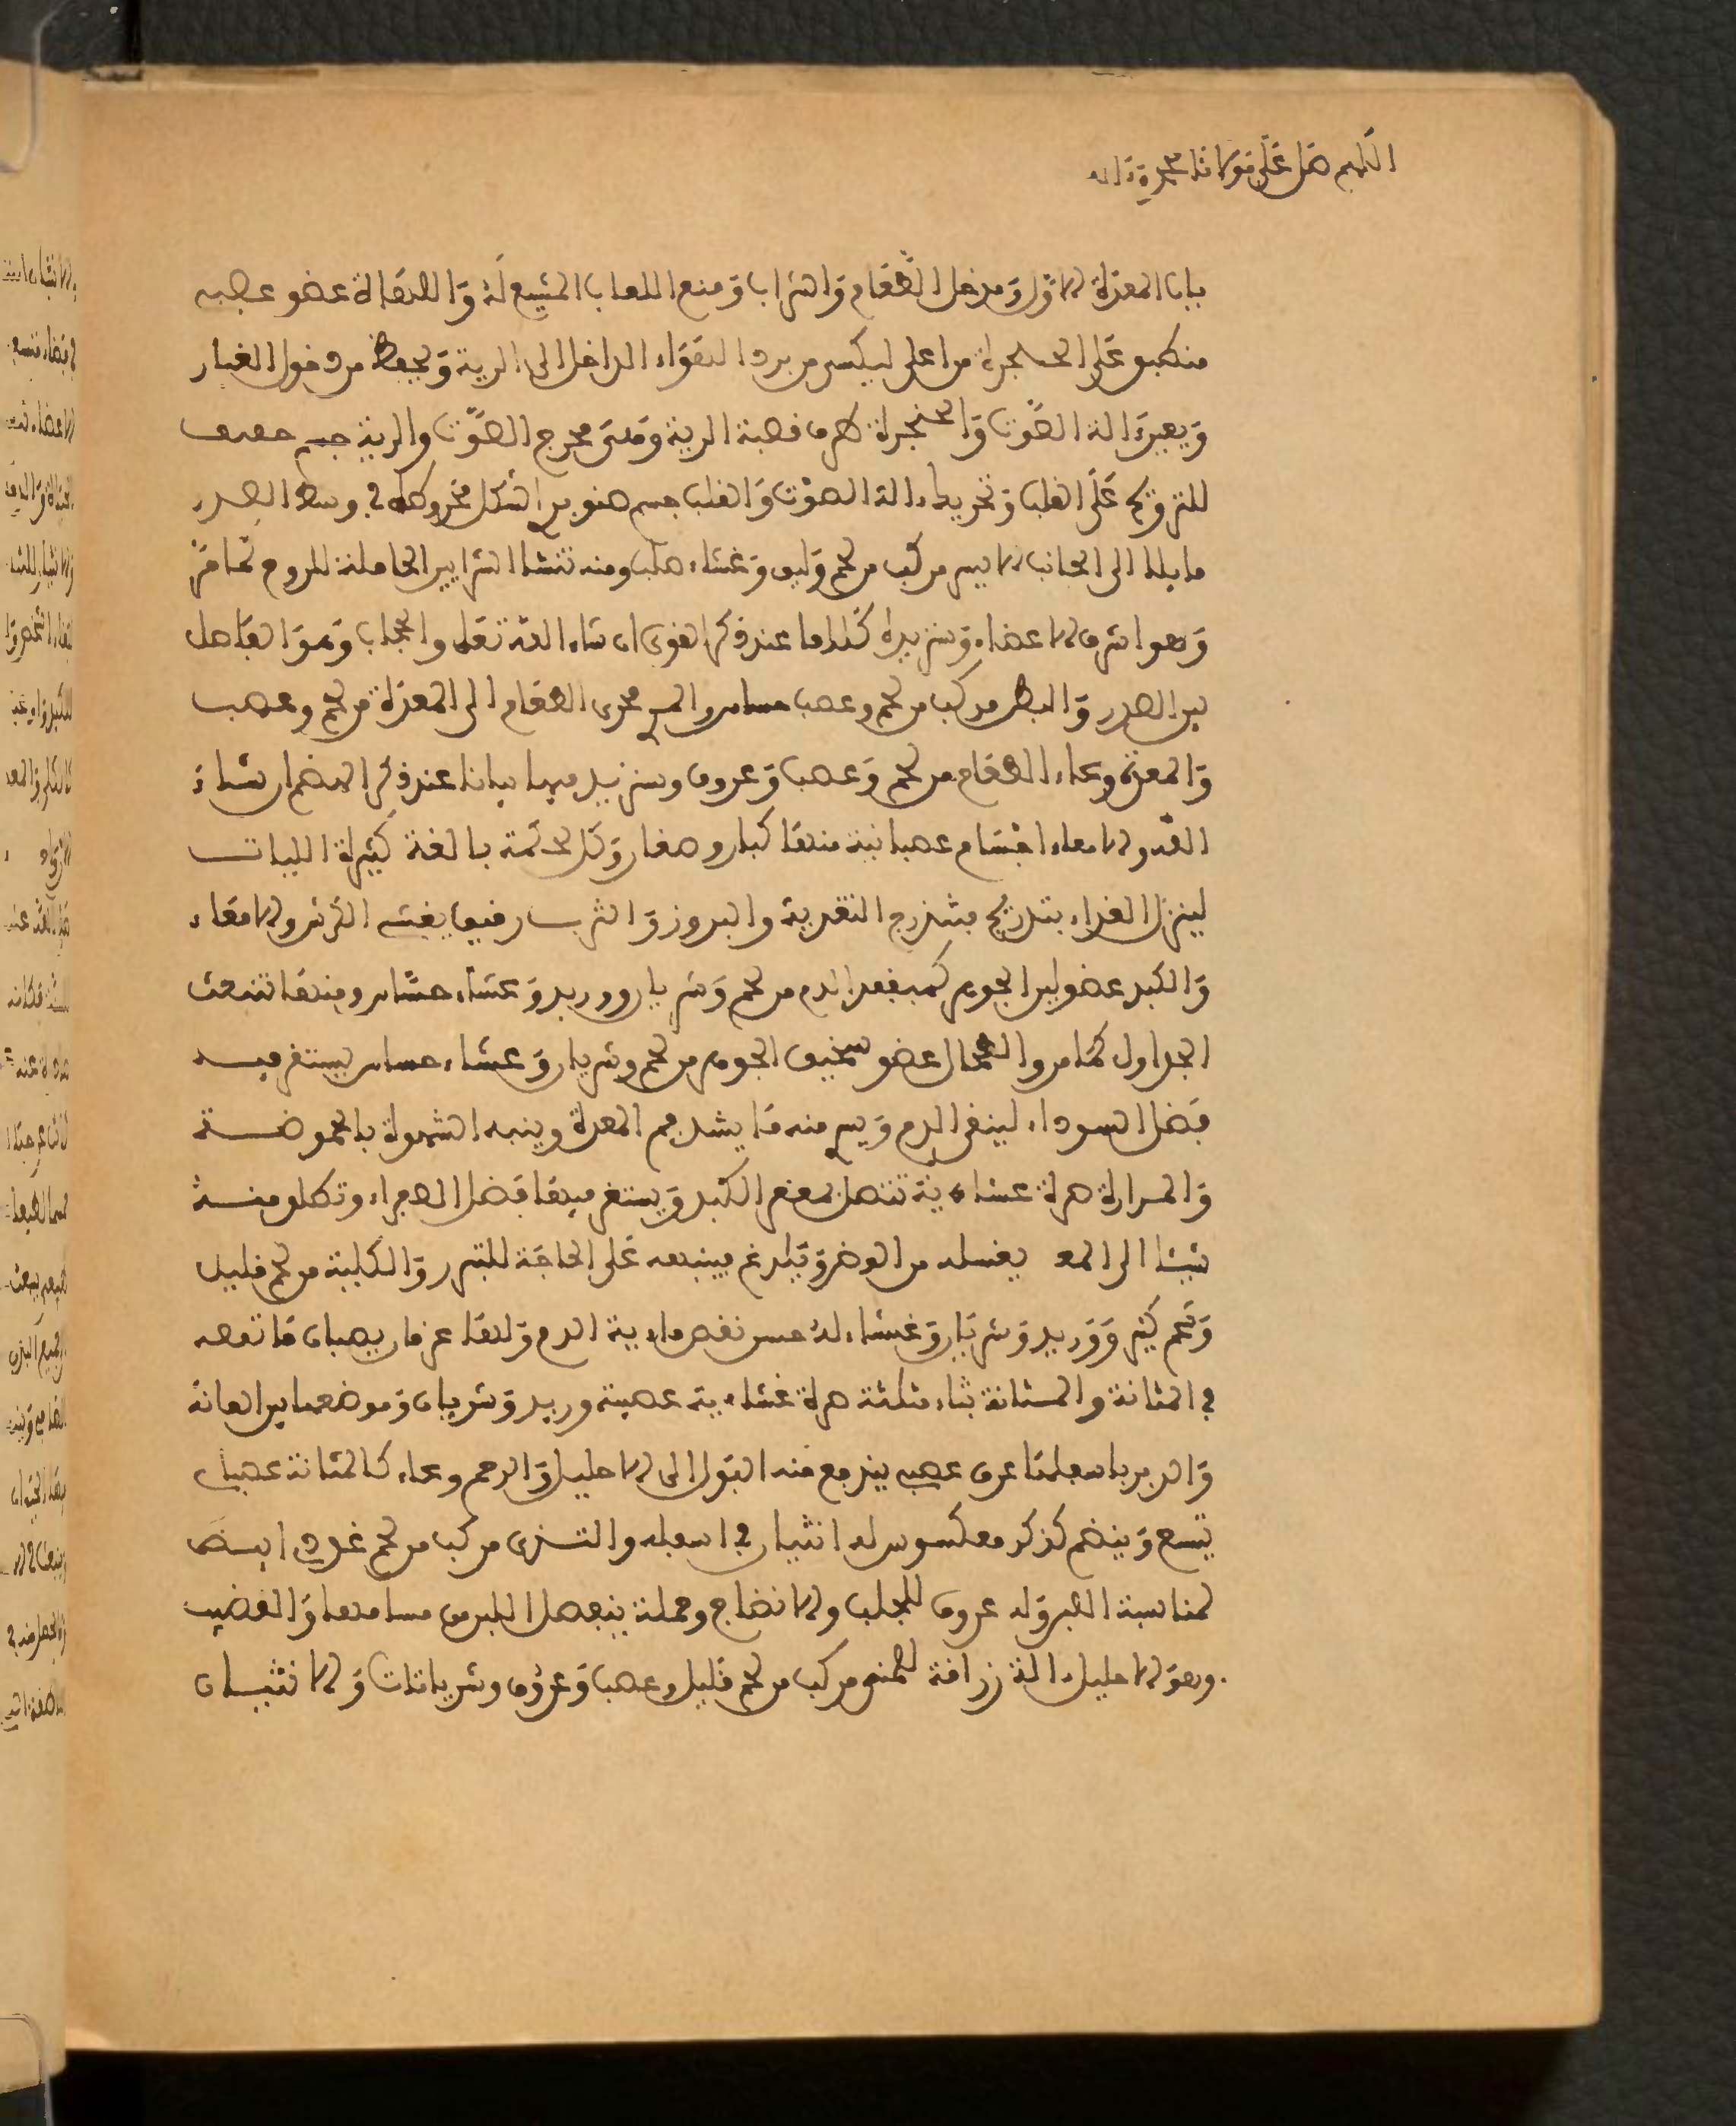 اللهم صل على مولانا محمد وآله
باب المعدة الاول ومدخل الطعام والشراب ومنبع اللعاب المشيع له واللهاة عضو عصبي
منكب على الحنجرة من اعلى ليكسر من برد الهواء الداخل الى الرية ويحفظ من دخول الغبار
ويعين الة الصوت والحنجرة طرف قصبة الرية ومنه مخرج الصوت والرية جسم خفيف
للترويح على القلب وتحريك الة الصوت والقلب جسم صنوبري الشكل مخروطه في وسط الصدر
مايلا الى الجانب الايسر مركب من لحم وليف وغشاء صلب ومنه تنشا الشرايين الحاملة للروح كما مر
وهو اشرف الاعضاء وسنزيده كلاما عند ذكر القوى ان شاء الله تعلى والحجاب وهو الفاصل
بين الصدر والبطن مركب من لحم وعصب حساس والمري مجرى الطعام الى المعدة من لحم وعصب
والمعدة وعاء الطعام من لحم وعصب وعروق وسنزيد فيها بيانا عند ذكر الهضم ان شاء
الله والامعاء اجسام عصبانية منها كبار وصغار وكل لحكمة بالغة كثيرة الليات
لينزل الغذاء بتدريج فيتدرج التغذية والبروز والثرب رقيق يغشي الكرش والامعاء
والكبد عضو لين الجرم كمبقعد الدم من لحم وشريان ووريد وغشاء حساس ومنها تنبعث
الجداول كما مر والطحال عضو سخيف الجرم من لحم وشريان وغشاء حساس يستقر فيه
فضل السوداء لينقى الدم ويسير منه ما يشد فم المعدة وينبه الشهوة بالحموضة
والمرارة صرة غشاءية تتصل بمقعر الكبد ويستقر فيها فضل الصفراء وتطلق منه
شيئا الى المعـ يغسله من الوضر ويلدغ فينبه على الحاجة للتبرز والكلية من لحم قليل
وشحم كثير ووريد وشريان وغشاء له حس تمتص ماءية الدم ولها عرفان يصبان ماتمصه
في المثانة والمثانة بثاء مثلثة صرة غشاءية عصبية وريد وشريان وموضعها بين العانة
والدبر باسفلها عرق عصبي يندفع منه البول الى الاحليل والرحم وعاء كالمثانة عصباني
يتسع وينضم كذكر معكوس له انثيان في اسفله والثدي مركب من لحم غددي ابيض
لمناسبة اللبن وله عروق للجلب والانضاج وحلمة ينفصل اللبن من مسامها والقضيب
وهو الاحليل الة زراقة للمني مركب من لحم قليل وعصب وعروق وشريانات والانثيان